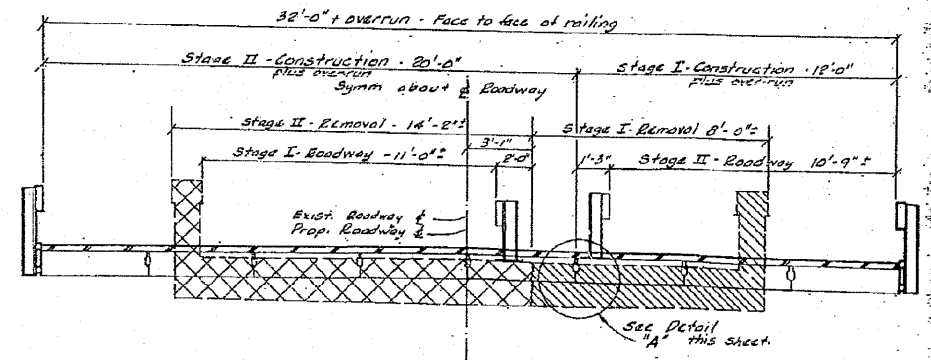 32'-0" + overrun - Face to face of railing
Stage II - Construction - 20'-0"
plus overrun
Stage I - Construction - 12'-0"
plus overrun
Symm about ℄ Roadway
Stage II - Removal - 14'-2"±
Stage I - Removal 8'-0"±
3'-1"
Stage I - Roadway - 11'-0"±
2'-0"
1'-3"
Stage II - Roadway 10'-9"±
Exist. Roadway ℄
Prop. Roadway ℄
See Detail
"A" this sheet.